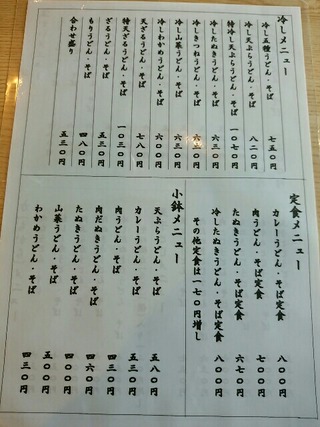 冷しメニュー
冷し五種うどん・そば 七五〇円
冷し天ぷらうどん・そば 八二〇円
特冷し天ぷらうどん・そば 一〇七〇円
冷したぬきうどん・そば 六三〇円
冷しきつねうどん・そば 六三〇円
冷し山菜うどん・そば 六三〇円
冷しわかめうどん・そば 六〇〇円
天ざるうどん・そば 七八〇円
特天ざるうどん・そば 一〇三〇円
ざるうどん・そば 五三〇円
もりうどん・そば 四八〇円
合わせ盛り 五三〇円
定食メニュー
カレーうどん・そば定食 八〇〇円
肉うどん・そば定食 七〇〇円
たぬきうどん・そば定食 六三〇円
冷したぬきうどん・そば定食 八〇〇円
その他定食は一七〇円増し
小鉢メニュー
天ぷらうどん・そば 五八〇円
カレーうどん・そば 五三〇円
肉うどん・そば 四三〇円
肉だぬきうどん・そば 四六〇円
たぬきうどん・そば 四〇〇円
山菜うどん・そば 五〇〇円
わかめうどん・そば 四三〇円